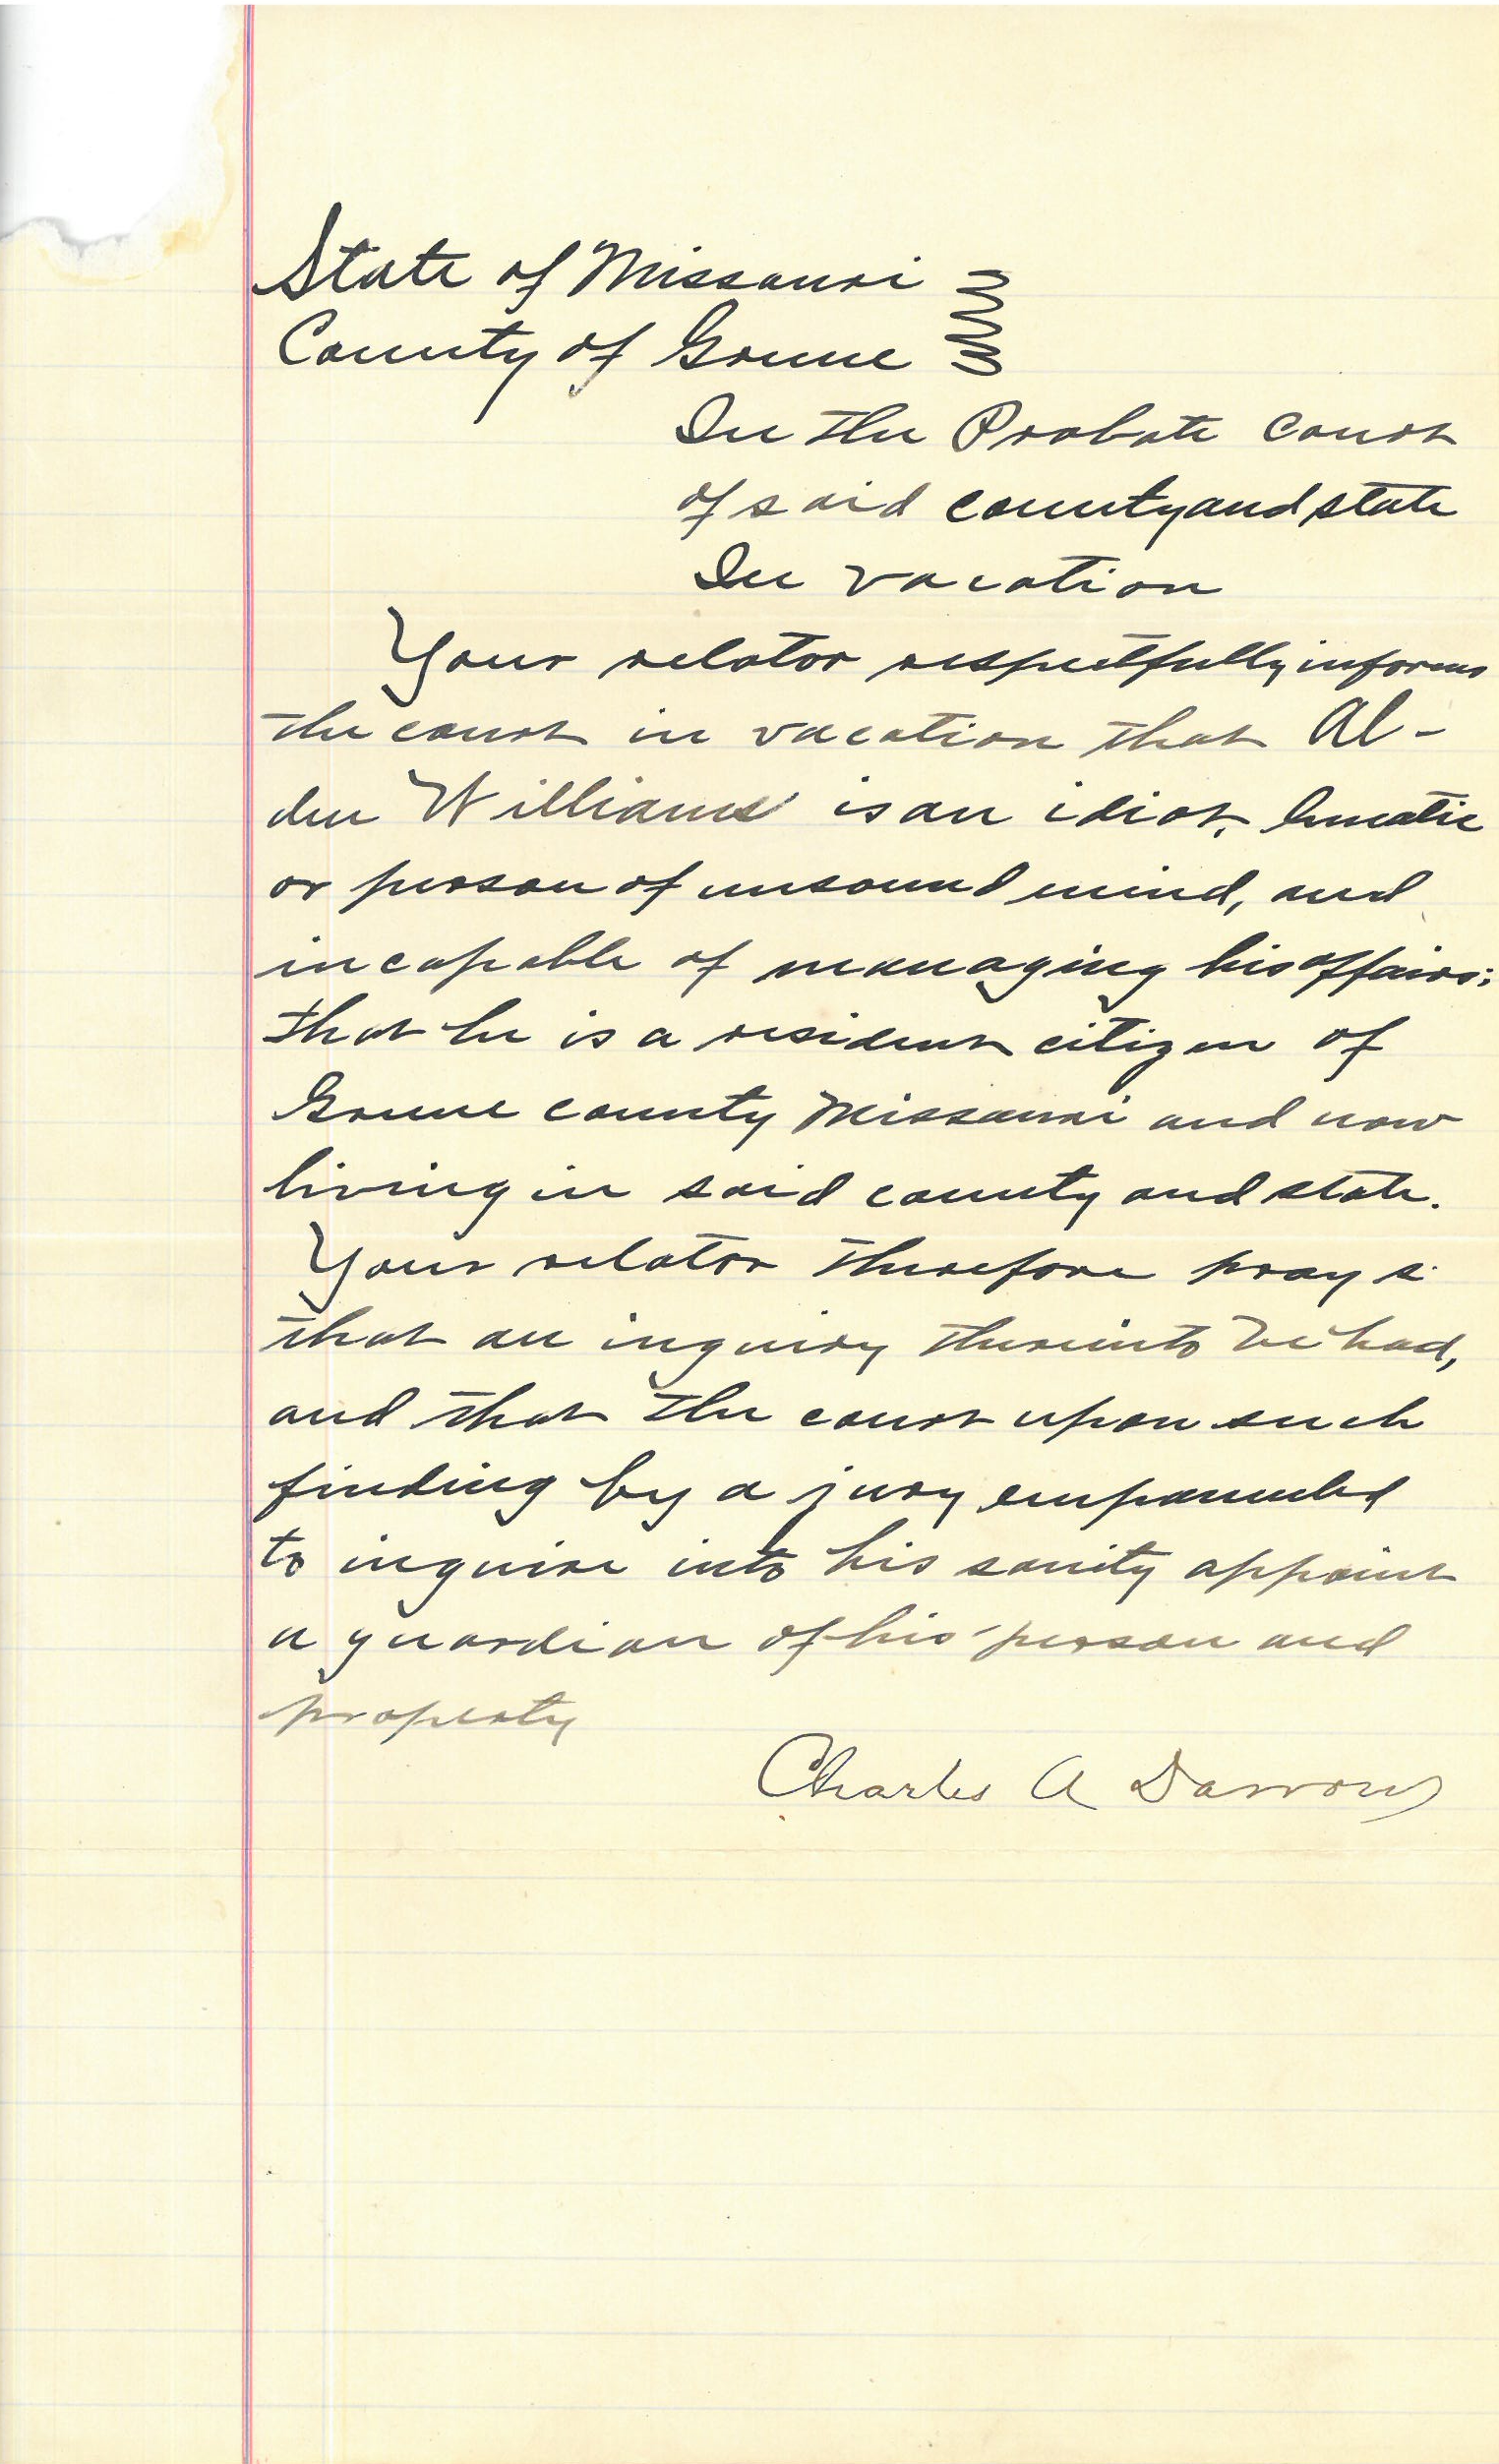 State of Missouri
County of Greene
In the Probate court
of said county and state
In vacation
Your relator respectfully informs
the court in vacation that Al-
den Williams is an idiot, lunatic
or person of unsound mind, and
incapable of managing his affairs;
that he is a resident citizen of
Greene county Missouri and now
living in said county and state.
Your relator therefore prays
that an inquiry thereinto be had,
and that the court upon such
finding by a jury empanneled
to inquire into his sanity appoint
a guardian of his person and
property
Charles A Darrow